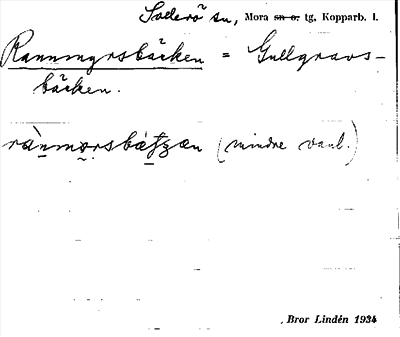 Solerö sn, Mora sn o. tg, Kopparb. l.
Ranmyrsbäcken = Gullgravs-
bäcken.
(mindre vanl.)
. Bror Lindén 1934